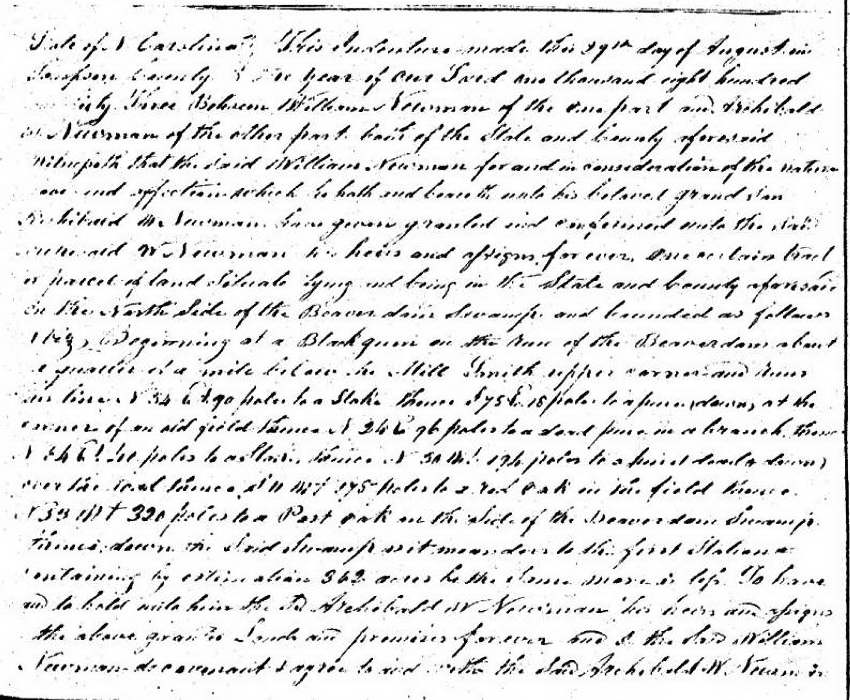 State of N Carolina } This Indenture made this 29th day of August in
Sampson County } the year of our Lord one thousand eight hundred
Three Between William Newman of the one part and Archibald
W Newman of the other part both of the State and County aforesaid
witnesseth that the said William Newman for and in consideration of the natural
love and affection which he hath and beareth unto his beloved grand son
Archibald W Newman have given granted and confirmed unto the said
Archibald W Newman his heirs and assigns forever, one certain tract
or parcel of land Situate lying and being in the State and County aforesaid
on the North Side of the Beaverdam Swamp and bounded as follows
Viz, Beginning at a Blackgum on the run of the Beaverdam about
a quarter of a mile below the Mill Smith upper corner and runs
line N 54 E 90 poles to a Stake thence S 75 E 18 poles to a pine, down, at the
corner of an old field thence N 24 E 96 poles to a dead pine in a branch, thence
N 54 E poles to a Stake, thence N 50 W 194 poles to a pine
over the road thence S 11 W 175 poles to a red Oak in the field thence
N 53 W 320 poles to a Post oak on the Side of the Beaverdam Swamp
thence down the Said Swamp meanders to the first Station
Containing by estimation 362 acres be the Same more or less. To have
and to hold unto him the Sd Archibald W Newman his heirs and assigns
the above granted Lands and premises forever and I the Said William
Newman do covenant & agree to and with the Said Archibald W Newman